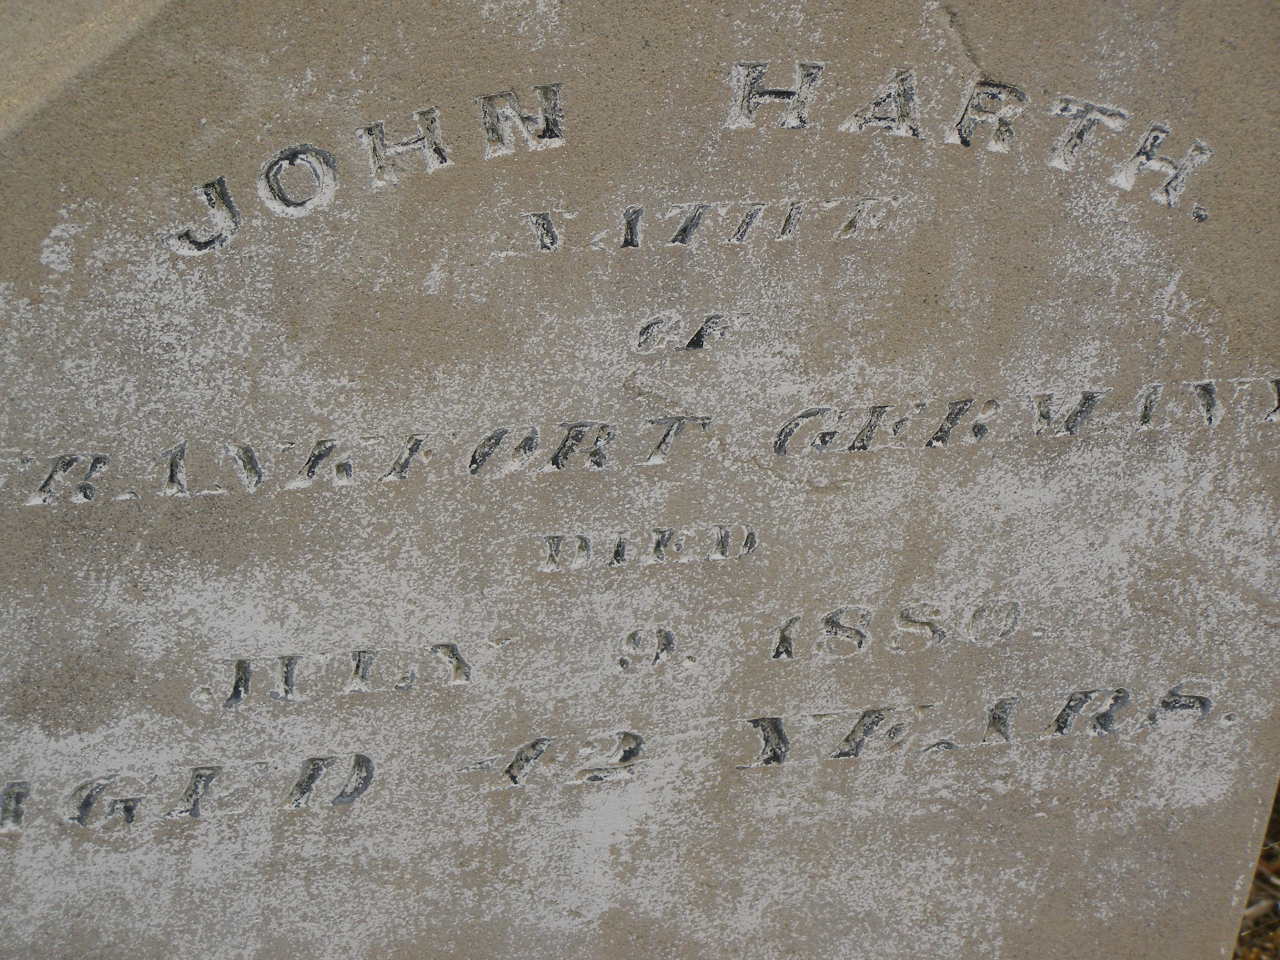 JOHN HARTH.
NATIVE
OF
FRANKFORT GERMANY
DIED
JULY 9, 1880
AGED 42 YEARS.